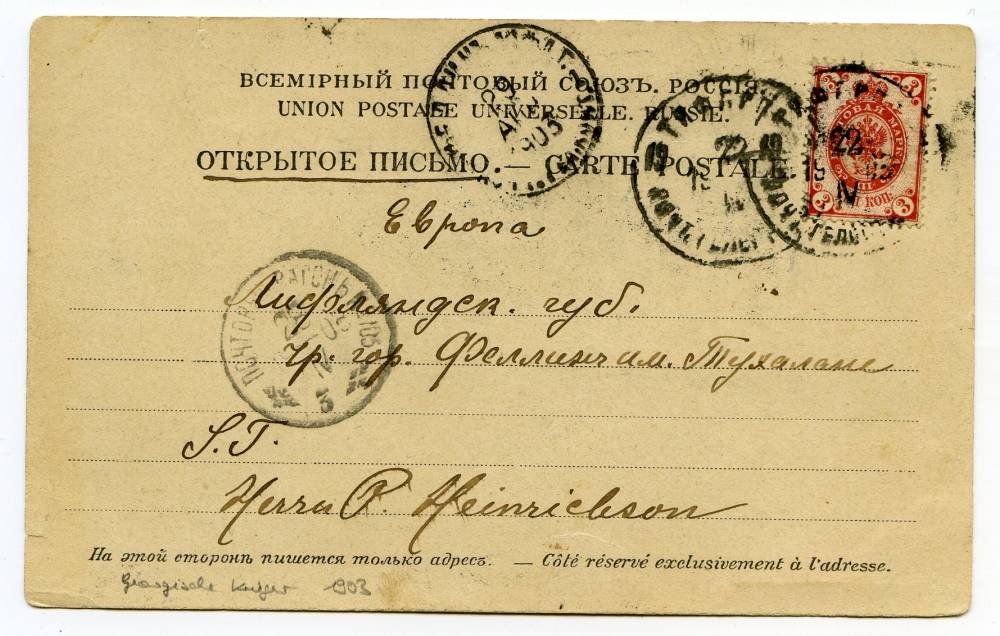 ВСЕМІРНЫЙ ПОЧТОВЫЙ СОЮЗЪ. РОССІЯ.
UNION POSTALE UNIVERSELLE. RUSSIE.
ОТКРЫТОЕ ПИСЬМО. — CARTE POSTALE.
1903
22
IV
3 3
3 3
Европа
Лифляндск. губ.
чр. гор. Феллинъ им. Тухалане
S. T.
Herrn P. Heinrichson
На этой сторонѣ пишется только адресъ. — Côté réservé exclusivement à l'adresse.
1903